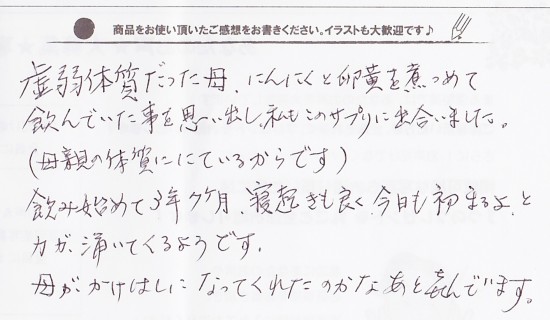 商品をお使い頂いたご感想をお書きください。イラストも大歓迎です♪
虚弱体質だった母、にんにくと卵黄を煮つめて
飲んでいた事を思い出し、私もこのサプリに出合いました。
(母親の体質ににているからです)
飲み始めて3年7ケ月、寝起きも良く、今日も初まるよ、と
力が湧いてくるようです。
母が、かけはしになってくれたのかなあと喜んでいます。